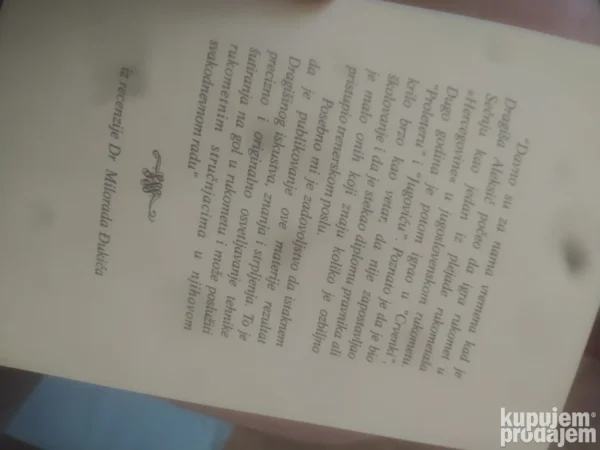 "Davno su za nama vremena kad je
Dragiša Alaksić počeo da igra rukomet u
Srbiji kao jedan iz plejade rukometaša
»Hercegovine« u Jugoslovenskom rukometu.
Dugo godina je potom igrao u "Crvenki",
"Proleteru" i "Jugoviću". Poznato je da je bio
krilo brzo kao vetar, da nije zapostavljao
školovanje i da je stekao diplomu pravnika ali
je malo onih koji znaju koliko je ozbiljno
pristupio trenerskom poslu.
Posebno mi je zadovoljstvo da istaknem
da je publikovanje ove materije rezultat
Dragišinog iskustva, znanja i strpljenja. To je
precizno i originalno osvetljavanje tehnike
šutiranja na gol u rukometu i može poslužiti
rukometnim stručnjacima u njihovom
svakodnevnom radu"
iz recenzije Dr Milorada Đukića
kupujem
prodajem